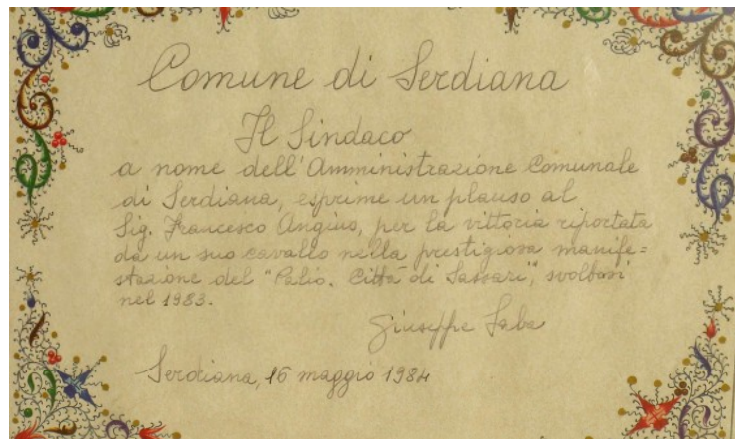 Comune di Serdiana
Il Sindaco
a nome dell'Amministrazione Comunale
di Serdiana, esprime un plauso al
Sig. Francesco Angius, per la vittoria riportata
da un suo cavallo nella prestigiosa manife=
stazione del "Palio. Città di Sassari", svoltasi
nel 1983.
Giuseppe Saba
Serdiana, 16 maggio 1984